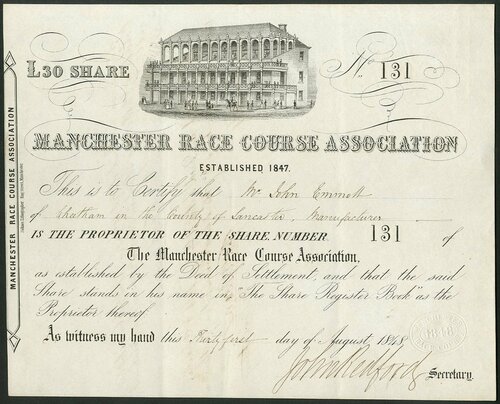 L30 SHARE
No. 131
MANCHESTER RACE COURSE ASSOCIATION
ESTABLISHED 1847.
This is to Certify that Mr John Emmott
of Chatham in the County of Lancaster, Manufacturer
IS THE PROPRIETOR OF THE SHARE NUMBER 131 of
The Manchester Race Course Association,
as established by the Deed of Settlement, and that the said
Share stands in his name in, "The Share Register Book" as the
Proprietor thereof.
As witness my hand this Thirty first day of August, 1848
John Redford
Secretary.
MANCHESTER RACE COURSE ASSOCIATION